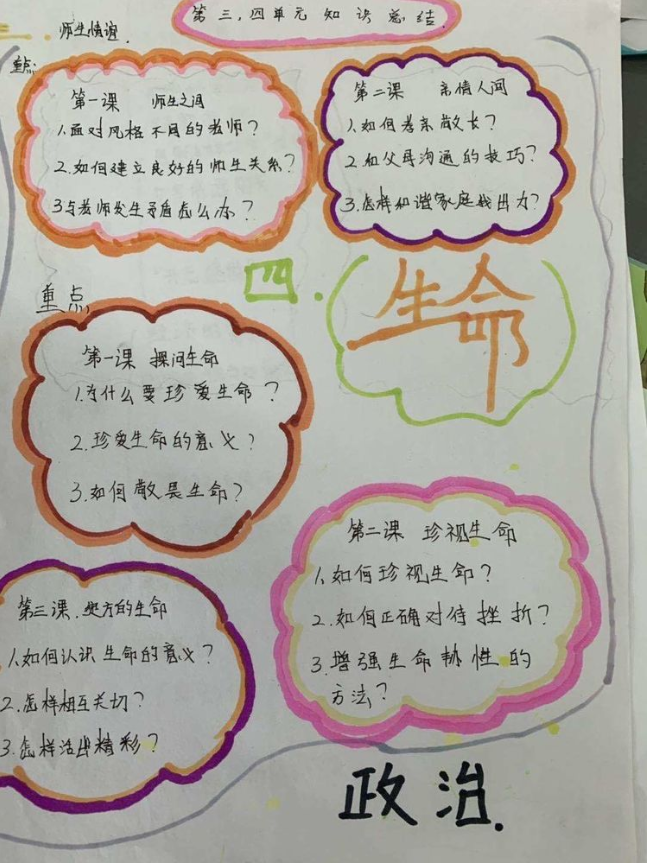 第三、四单元知识总结
师生情谊
重点:
第一课 师生之间
1.面对风格不同的教师?
2.如何建立良好的师生关系?
3与教师发生矛盾怎么办?
第二课 亲情人间
1.如何孝亲敬长?
2和父母沟通的技巧?
3.怎样和谐家庭我出力?
四.
生命
重点
第一课 探问生命
1.为什么要珍爱生命?
2.珍爱生命的意义?
3.如何敬畏生命?
第二课 珍视生命
1.如何珍视生命?
2.如何正确对待挫折?
3.增强生命韧性的
方法?
第三课.绽方的生命
1.如何认识生命的意义?
2.怎样相互关切?
3.怎样活出精彩?
政治.